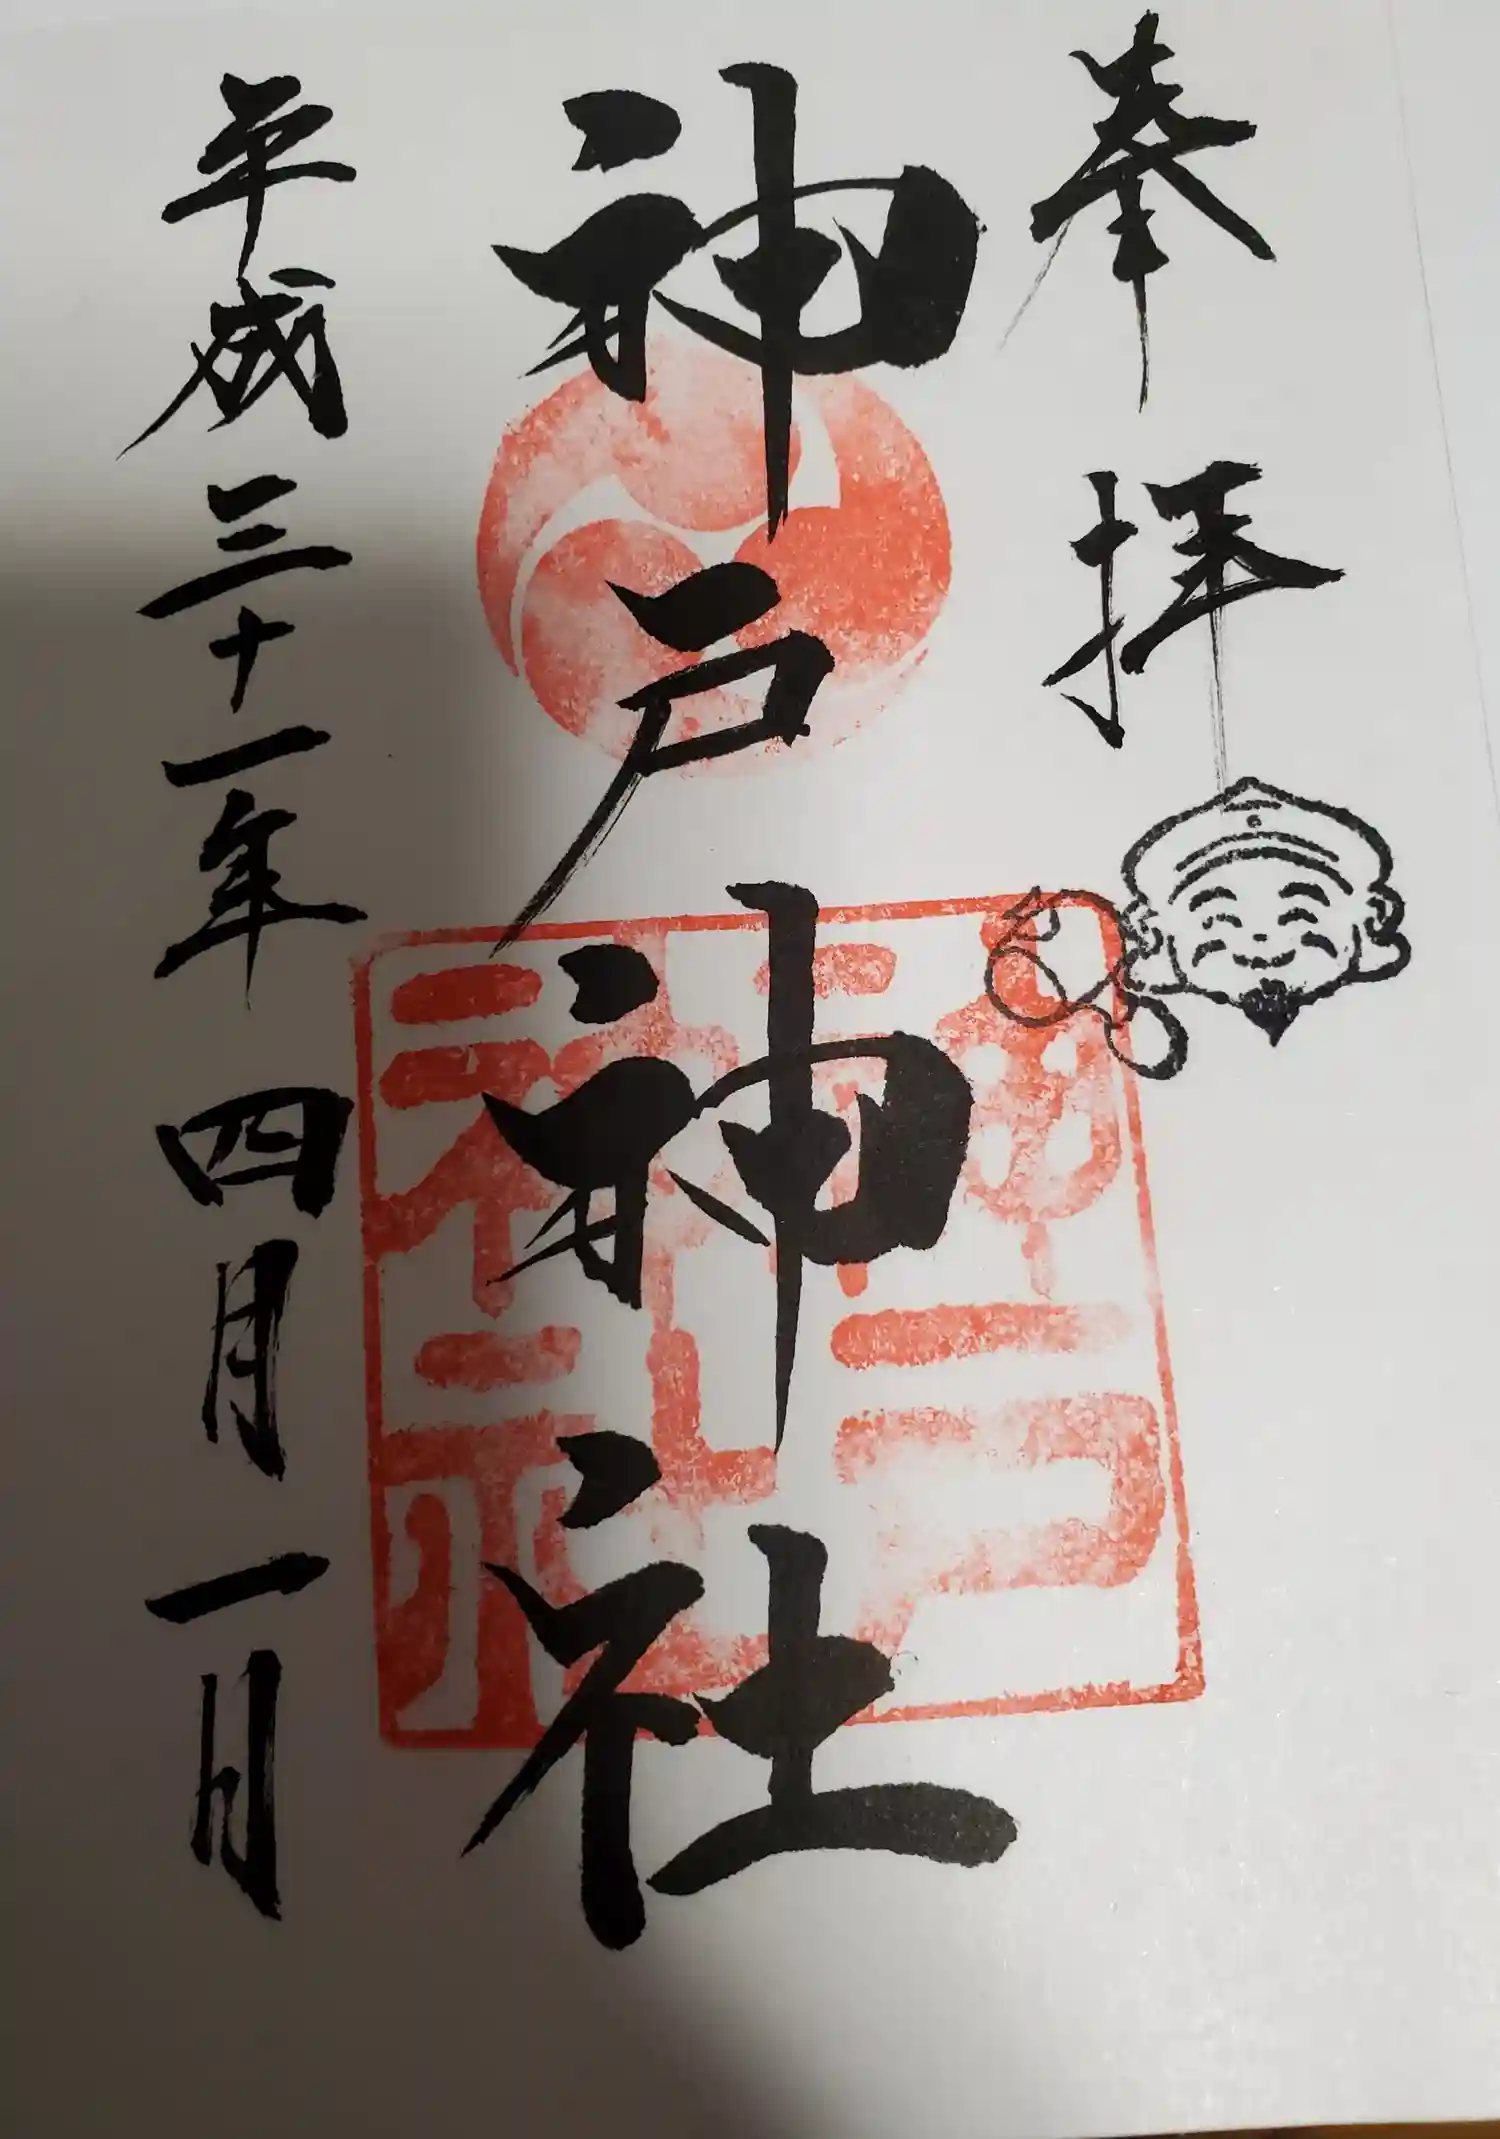 奉拝
神戸神社
神戸神社
平成三十一年四月一日